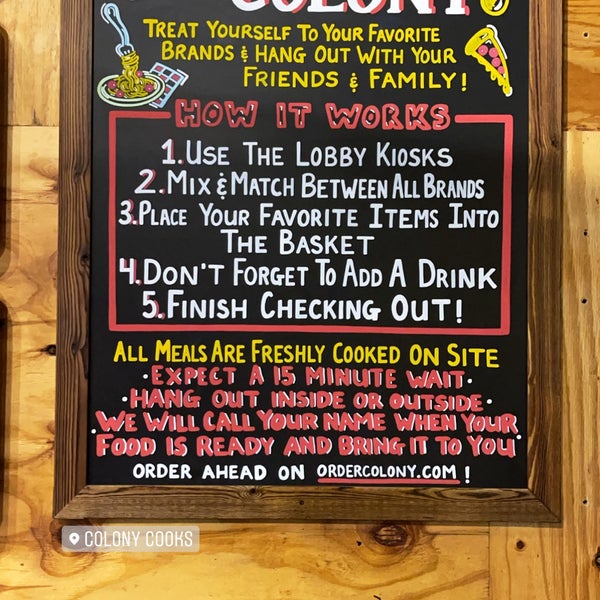 COLONY
TREAT YOURSELF TO YOUR FAVORITE
BRANDS & HANG OUT WITH YOUR
FRIENDS & FAMILY!
HOW IT WORKS
1. USE THE LOBBY KIOSKS
2. MIX & MATCH BETWEEN ALL BRANDS
3. PLACE YOUR FAVORITE ITEMS INTO
THE BASKET
4. DON'T FORGET TO ADD A DRINK
5. FINISH CHECKING OUT!
ALL MEALS ARE FRESHLY COOKED ON SITE
·EXPECT A 15 MINUTE WAIT·
·HANG OUT INSIDE OR OUTSIDE·
·WE WILL CALL YOUR NAME WHEN YOUR
FOOD IS READY AND BRING IT TO YOU·
ORDER AHEAD ON ORDERCOLONY.COM!
COLONY COOKS